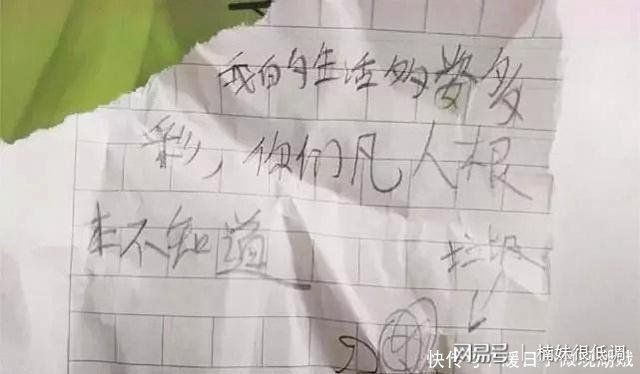 我的生活多姿多
彩，你们凡人根
本不知道
垃圾
网易号 | 楠妹很低调